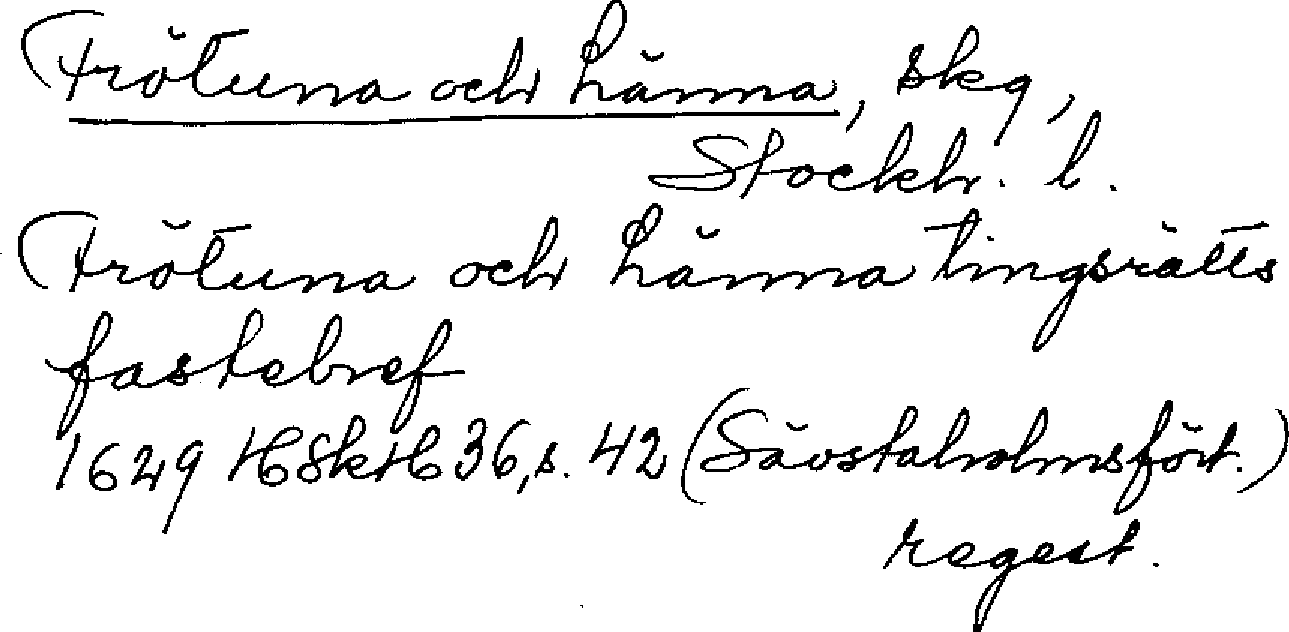 Frötuna och Länna, skg,
Stockh. l.
Frötuna och Länna tingsrätts
fastebref
1629 HSkH 36, s. 42 (Sävstaholmsfört.)
regest.